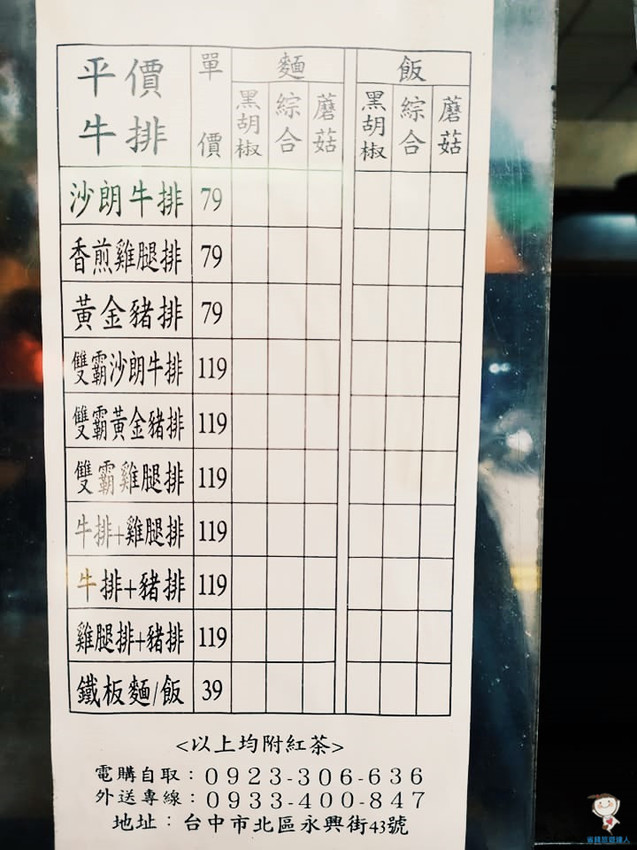 平價牛排 單價 麵 飯
黑胡椒 綜合 蘑菇 黑胡椒 綜合 蘑菇
沙朗牛排 79
香煎雞腿排 79
黃金豬排 79
雙霸沙朗牛排 119
雙霸黃金豬排 119
雙霸雞腿排 119
牛排+雞腿排 119
牛排+豬排 119
雞腿排+豬排 119
鐵板麵/飯 39
<以上均附紅茶>
電購自取：0923-306-636
外送專線：0933-400-847
地址：台中市北區永興街43號